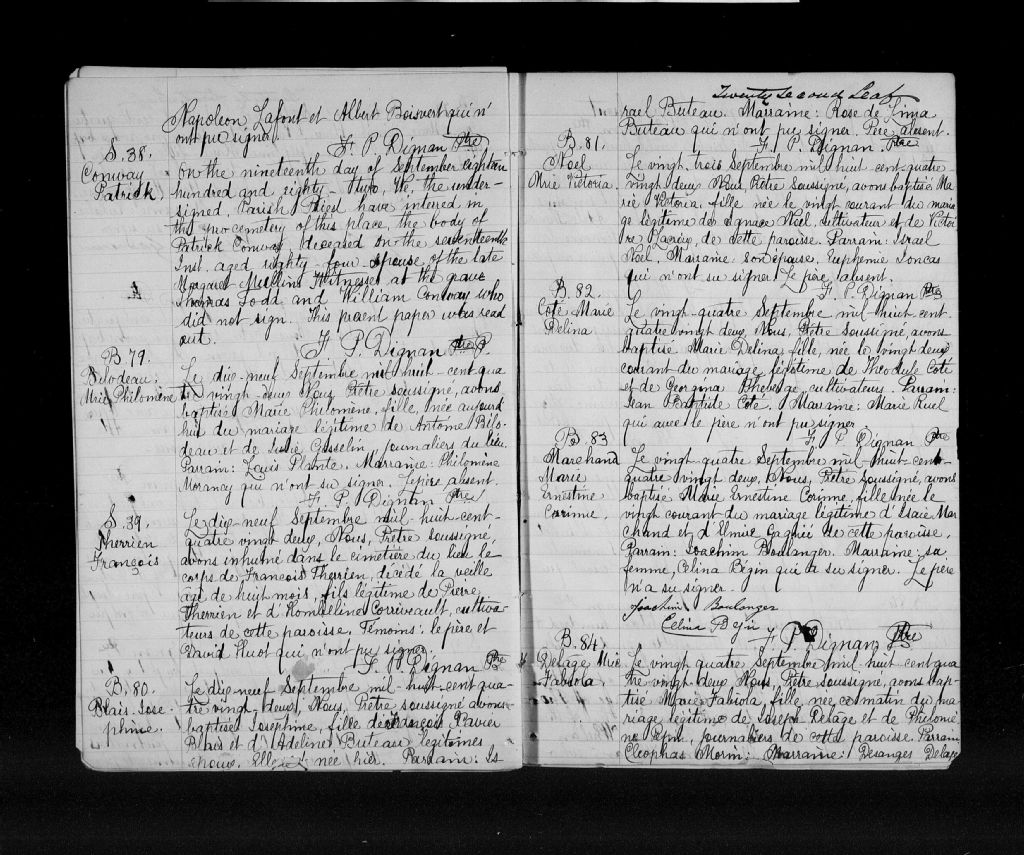 Napoleon Lafont et Albert Boisvert qui n'
ont pu signer.
F. P. Dignan Ptre
S. 38.
Conway
Patrick.
On the nineteenth day of September eighteen
hundred and eighty-two, We, the under-
signed, Parish Priest have interred in
the cemetery of this place, the body of
Patrick Conway, deceased on the seventeenth
Inst. aged eighty-four spouse of the late
Margaret Mullins Witnesses at the grave
Thomas Todd and William Conway who
did not sign. This present paper was read
out.
F. P. Dignan Ptre
B. 79.
Bilodeau:
Mrie Philomène
Le dix-neuf Septembre mil huit-cent qua
tre vingt-deux Nous Prêtre soussigné, avons
baptisé Marie Philomène, fille, née aujourd
hui du mariage légitime de Antoine Bilo-
deau et de Gosselin journaliers du lieu.
Parrain: Louis Plante. Marraine: Philomène
Morancy qui n'ont su signer. Le père absent.
F. P. Dignan Ptre
S. 39.
Therrien
François
Le dix-neuf Septembre mil-huit-cent-
quatre vingt deux, Nous, Prêtre Soussigné,
avons inhumé dans le cimetière du lieu le
corps de François Therrien, décédé la veille
age de huit mois, fils légitime de Pierre
Therrien et d' Corriveault, cultiva-
teurs de cette paroisse. Témoins: le père et
David Huot qui n'ont pu signer
F. P. Dignan Ptre
B. 80.
Blais. Jose-
phine.
Le dix-neuf Septembre mil-huit-cent qua-
tre vingt-deux, Nous, Prêtre soussigné avons
baptisé Josephine, fille de François Xavier
Blais et d'Adeline Buteau légitimes
époux. Elle née hier. Parrain: Is
Twenty second Leaf
rael Buteau. Marraine: Rose de Lima
Buteau qui n'ont pu signer. Père absent.
F. P. Dignan. Ptre
B. 81.
Noel
Mrie Victoria.
Le vingt-trois Septembre mil huit cent-quatre
vingt deux Nous Prêtre Soussigné, avons baptisé Ma
rie Victoria, fille née le vingt courant du maria
ge légitime de Ignace Noël, cultivateur et de Victoi
re, de cette paroisse. Parrain: Israel
Noël, Marraine: son épouse, Euphémie Loncas
qui n'ont su signer. Le père absent.
F. P. Dignan Ptre
B. 82.
Coté Marie
Delina
Le vingt-quatre Septembre mil-huit cent-
quatre vingt deux, Nous, Prêtre Soussigné, avons
baptisé Marie Delina fille, née le vingt deux
courant du mariage légitime de Theodule Coté
et de Georgina Theberge cultivateurs. Parrain:
Jean Baptiste Coté. Marraine: Marie Ruel
qui avec le père n'ont pu signer
F. P. Dignan Ptre
B. 83
Marchand
Marie
Ernestine
Corinne.
Le vingt-quatre Septembre mil-huit-cent-
quatre vingt deux, Nous, Prêtre Soussigné, avons
baptisé Marie Ernestine Corinne, fille née le
vingt courant du mariage légitime d'Isaïe Mar
chand et d'Elmire Gagné de cette paroisse.
Parrain: Joachim Boulanger. Marraine: sa
femme, Celina Bégin qui a su signer. Le père
n'a su signer.
Joachim Boulanger
Celina Bejin
F. P. Dignan Ptre
B. 84.
Delage Mrie
Fabiola
Le vingt quatre Septembre mil-huit cent qua
tre vingt deux Nous, Prêtre Soussigné, avons bap-
tisé Marie Fabiola, fille née ce matin du ma
riage légitime de Joseph Delage et de Philomè
ne journaliers de cette paroisse. Parrain
Cleophas Morin: Marraine: Desanges Delage